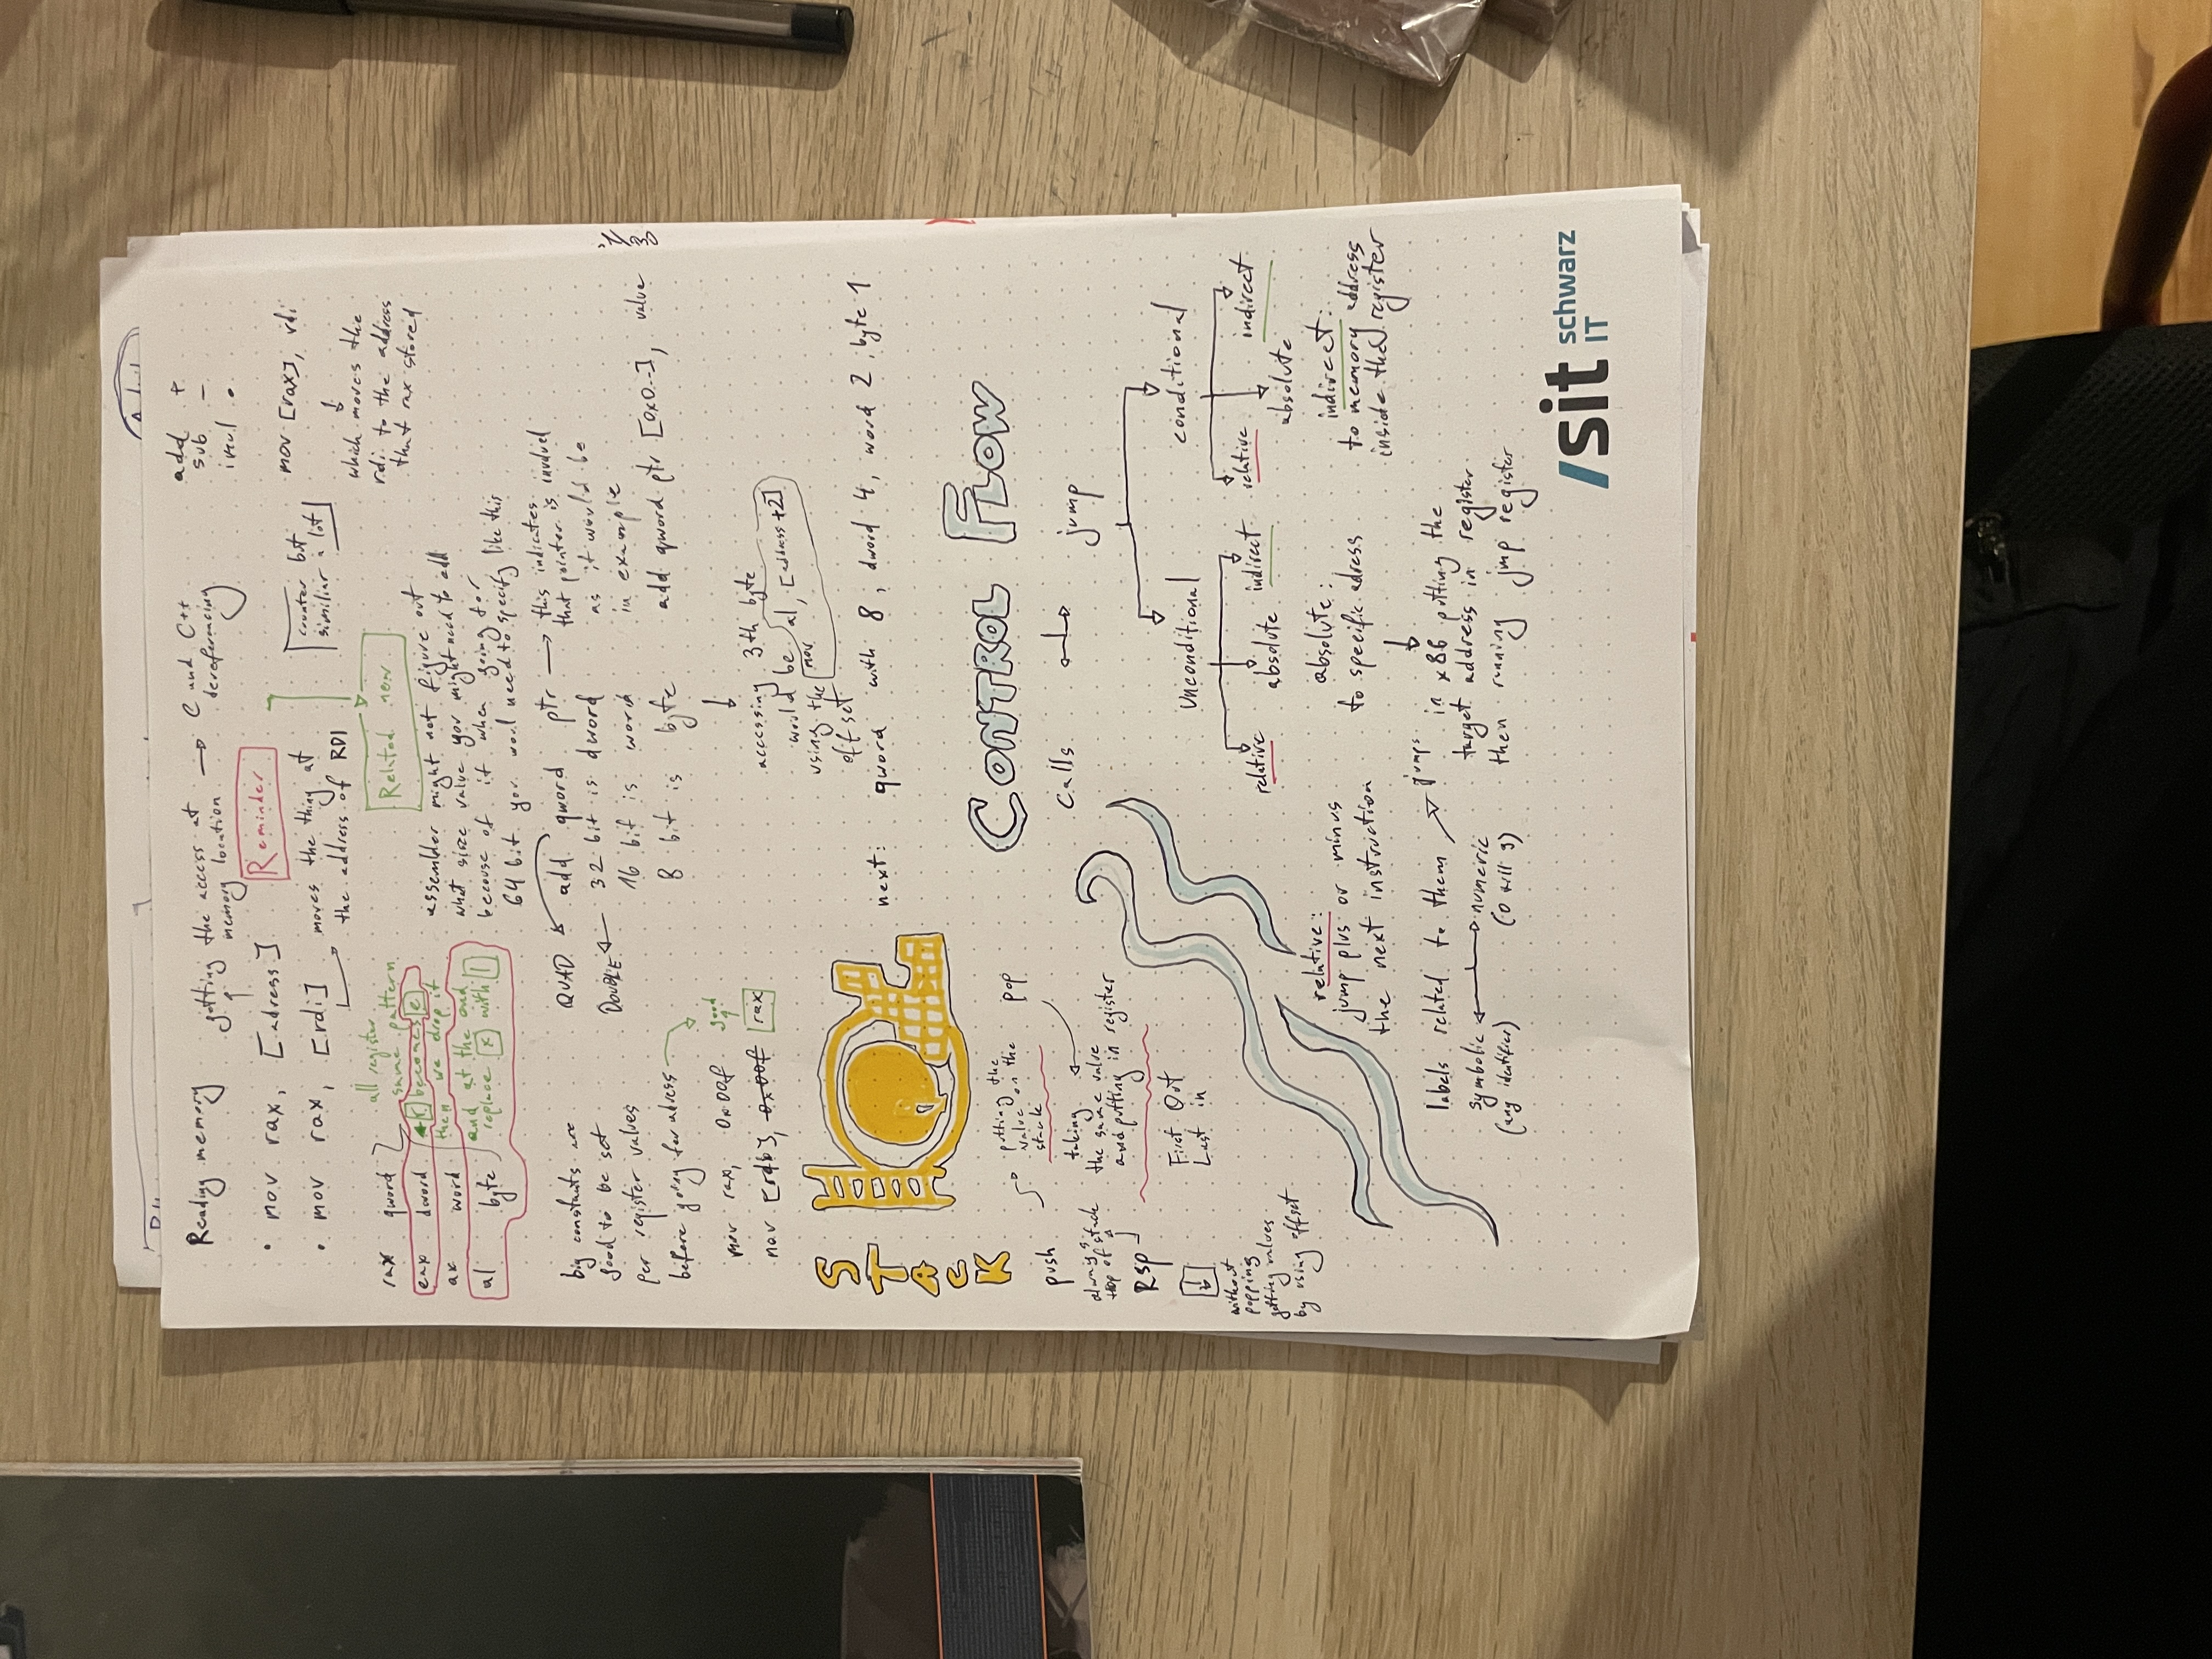 Reading memory
getting the access at
memory location
C und C++
dereferencing
add +
sub -
imul •
• mov rax, [adress]
Reminder
• mov rax, [rdi]
moves the thing at
the address of RDI
counter but
similiar a lot
mov [rax], rdi
which moves the
rdi to the address
that rax stored
Related new
rax qword
eax dword
ax word
al byte
all register
same pattern
r becomes e
then we drop it
and at the end
replace x with l
assembler might not figure out
what size value you might need to add
because of it when going for
64 bit you woul need to specify like this
big constants are
good to be set
per register values
before going for adress
good
mov rax, 0x00f
mov [rdb], 0x00f rax
QUAD
add qword ptr
DOUBLE
32 bit is dword
16 bit is word
8 bit is byte
this indicates
that pointer is involved
as it would be
in example
add qword ptr [0x0--], value
accessing 3th byte
would be
using the
offset
mov al, [address+2]
next: qword with 8, dword 4, word 2, byte 1
STACK
push
putting the
value on the
stack
pop
taking
the same value
and putting in register
always
top of stack
Rsp
First Out
Last in
without
popping
getting values
by using offset
CONTROL FLOW
Calls
jump
Unconditional
conditional
relative
absolute
indirect
relative
absolute
indirect
relative:
jump plus or minus
the next instruction
absolute:
to specific adress
indirect:
to memory address
inside the register
labels related to them
jumps
symbolic
(any identifier)
numeric
(0 till 9)
in x86 putting the
target address in register
then running jmp register
/sit schwarz
IT